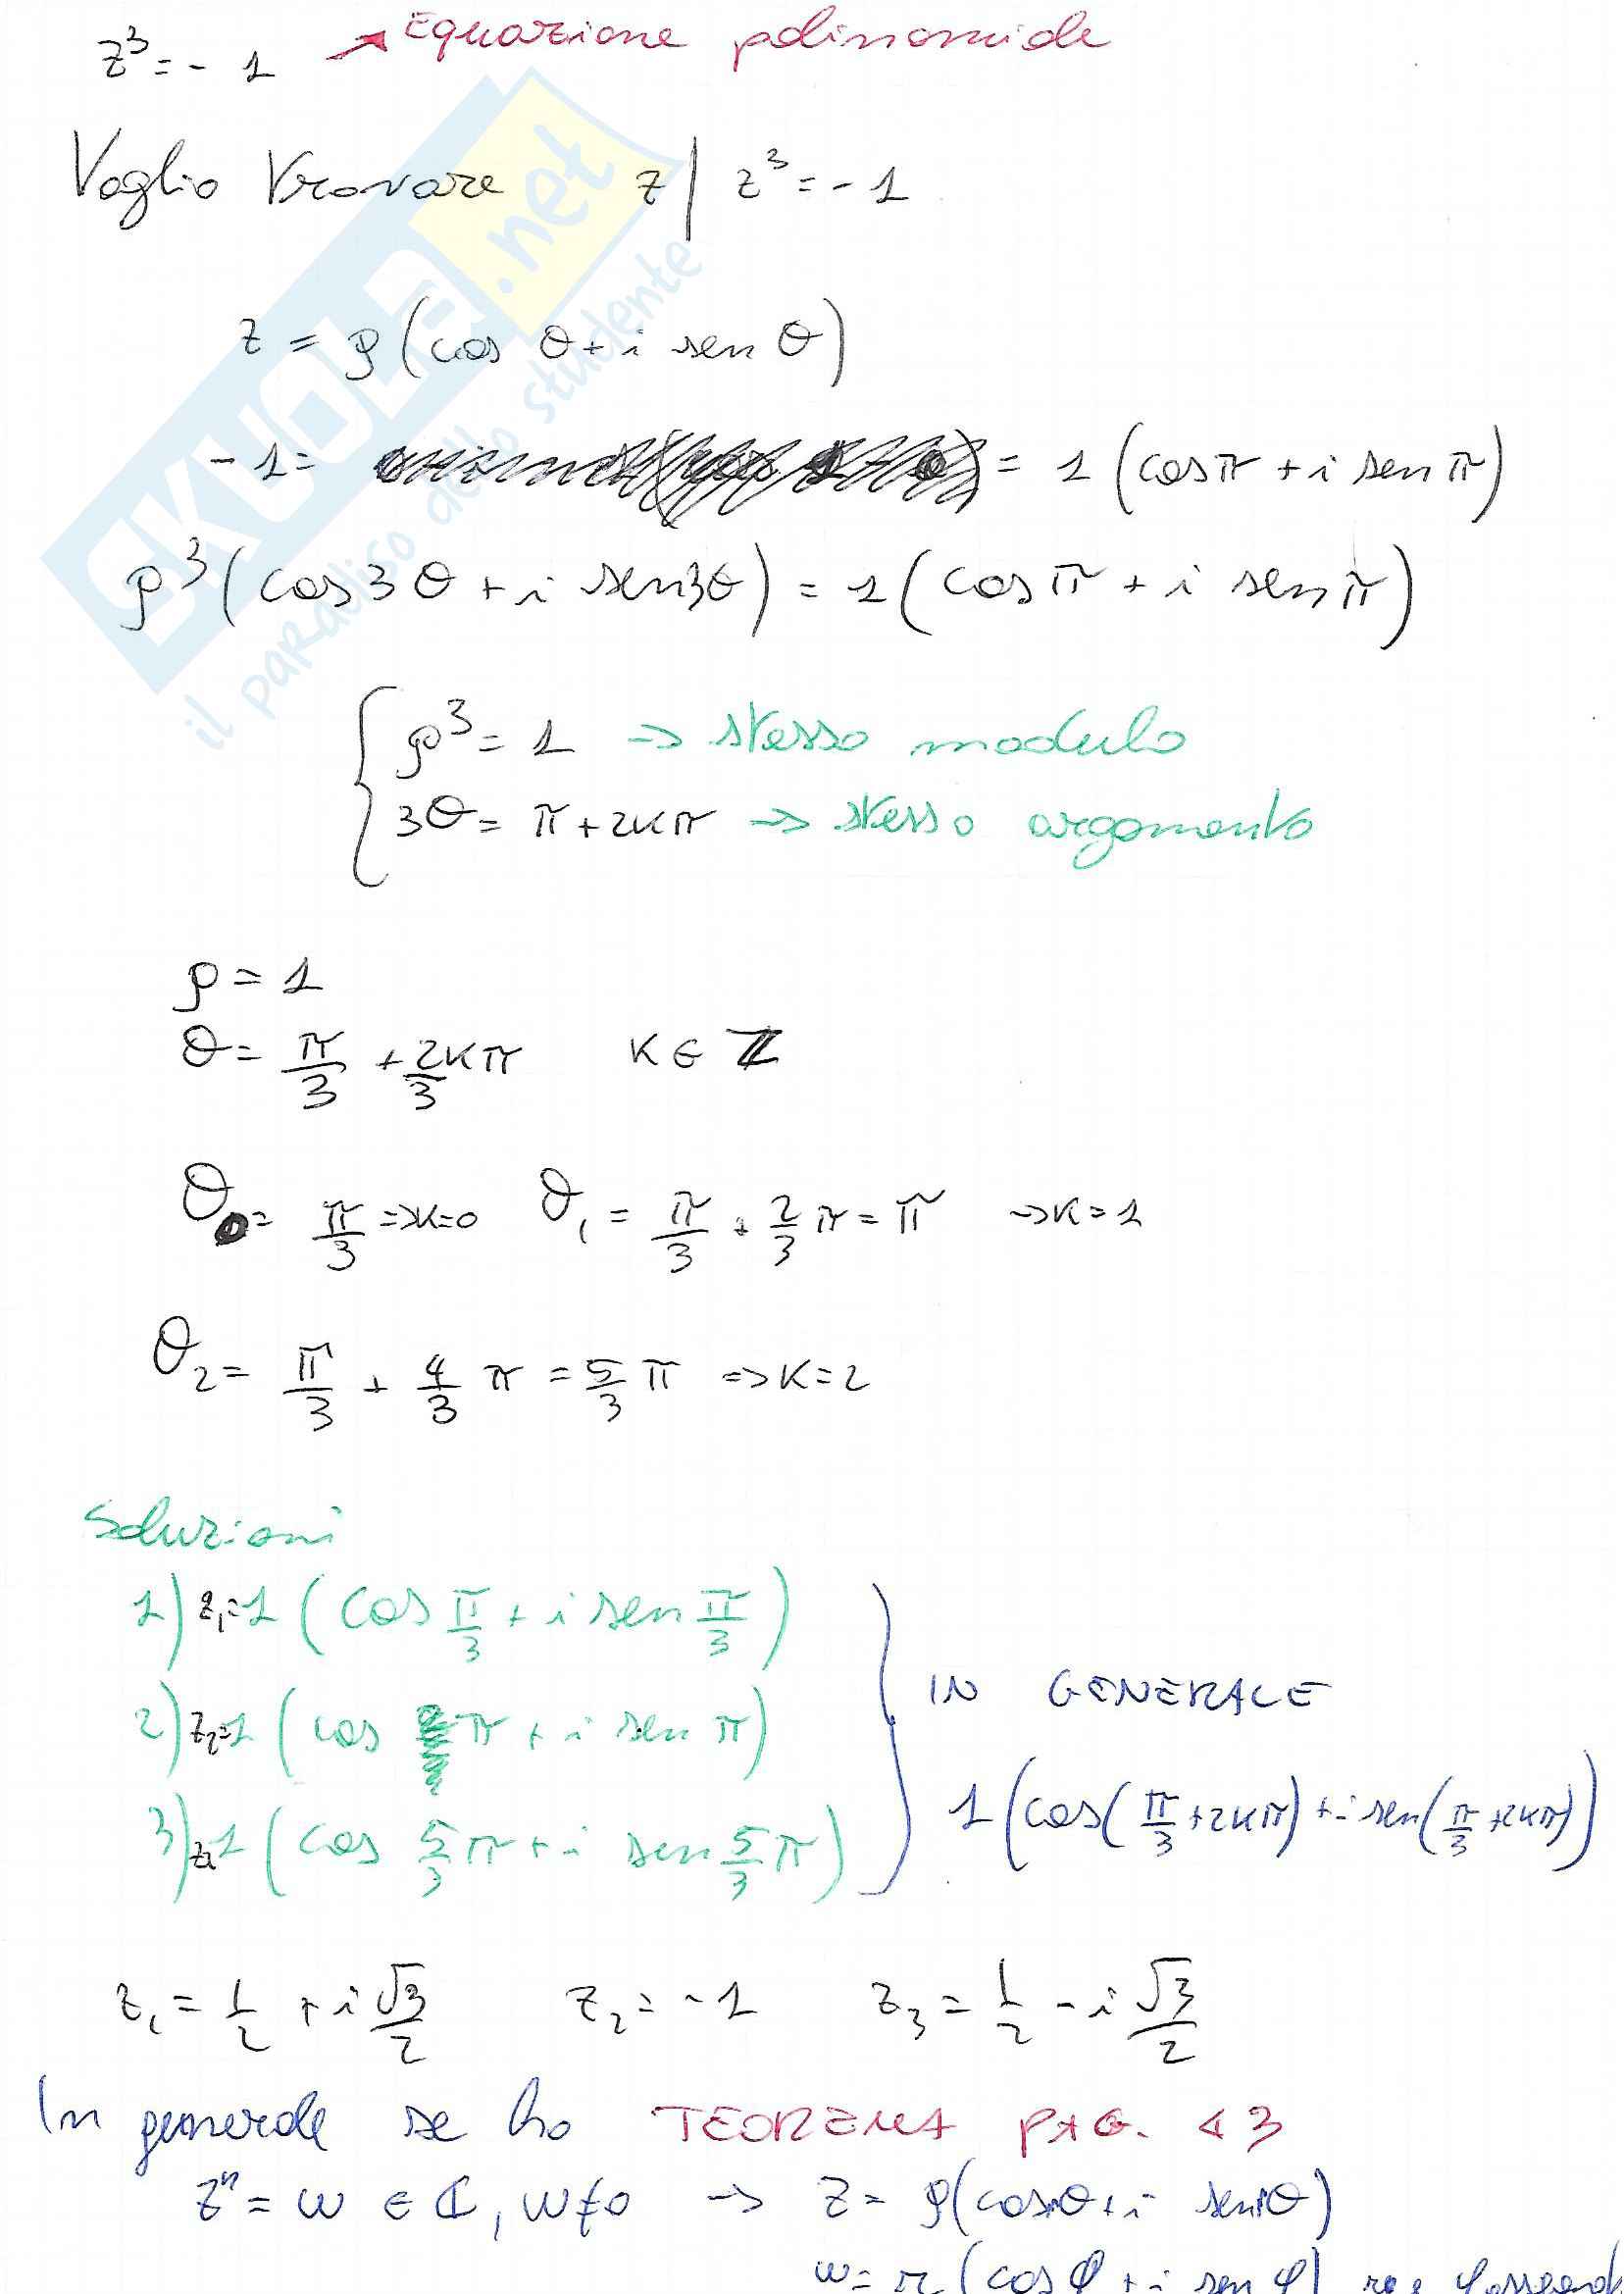 z³ = - 1 → Equazione polinomiale
Voglio trovare z | z³ = - 1
z = ρ (cos θ + i sen θ)
- 1 = = 1 (cos π + i sen π)
ρ³ (cos 3θ + i sen 3θ) = 1 (cos π + i sen π)
ρ³ = 1 → stesso modulo
3θ = π + 2kπ → stesso argomento
ρ = 1
θ = π/3 + 2/3 kπ k ∈ ℤ
θ₀ = π/3 => k=0 θ₁ = π/3 + 2/3 π = π → k = 1
θ₂ = π/3 + 4/3 π = 5/3 π => k = 2
Soluzioni
1) z₁ = 1 (cos π/3 + i sen π/3)
2) z₂ = 1 (cos π + i sen π)
IN GENERALE
3) 1 (cos 5/3 π + i sen 5/3 π)
1 (cos(π/3 + 2kπ) + i sen(π/3 + 2kπ))
z₁ = 1/2 + i √3/2 z₂ = - 1 z₃ = 1/2 - i √3/2
In generale se ho TEOREMA PAG. 43
zⁿ = w ∈ ℂ, w ≠ 0 → z = ρ (cos θ + i sen θ)
w = r (cos φ + i sen φ)
SKUOLA.net
il paradiso dello studente